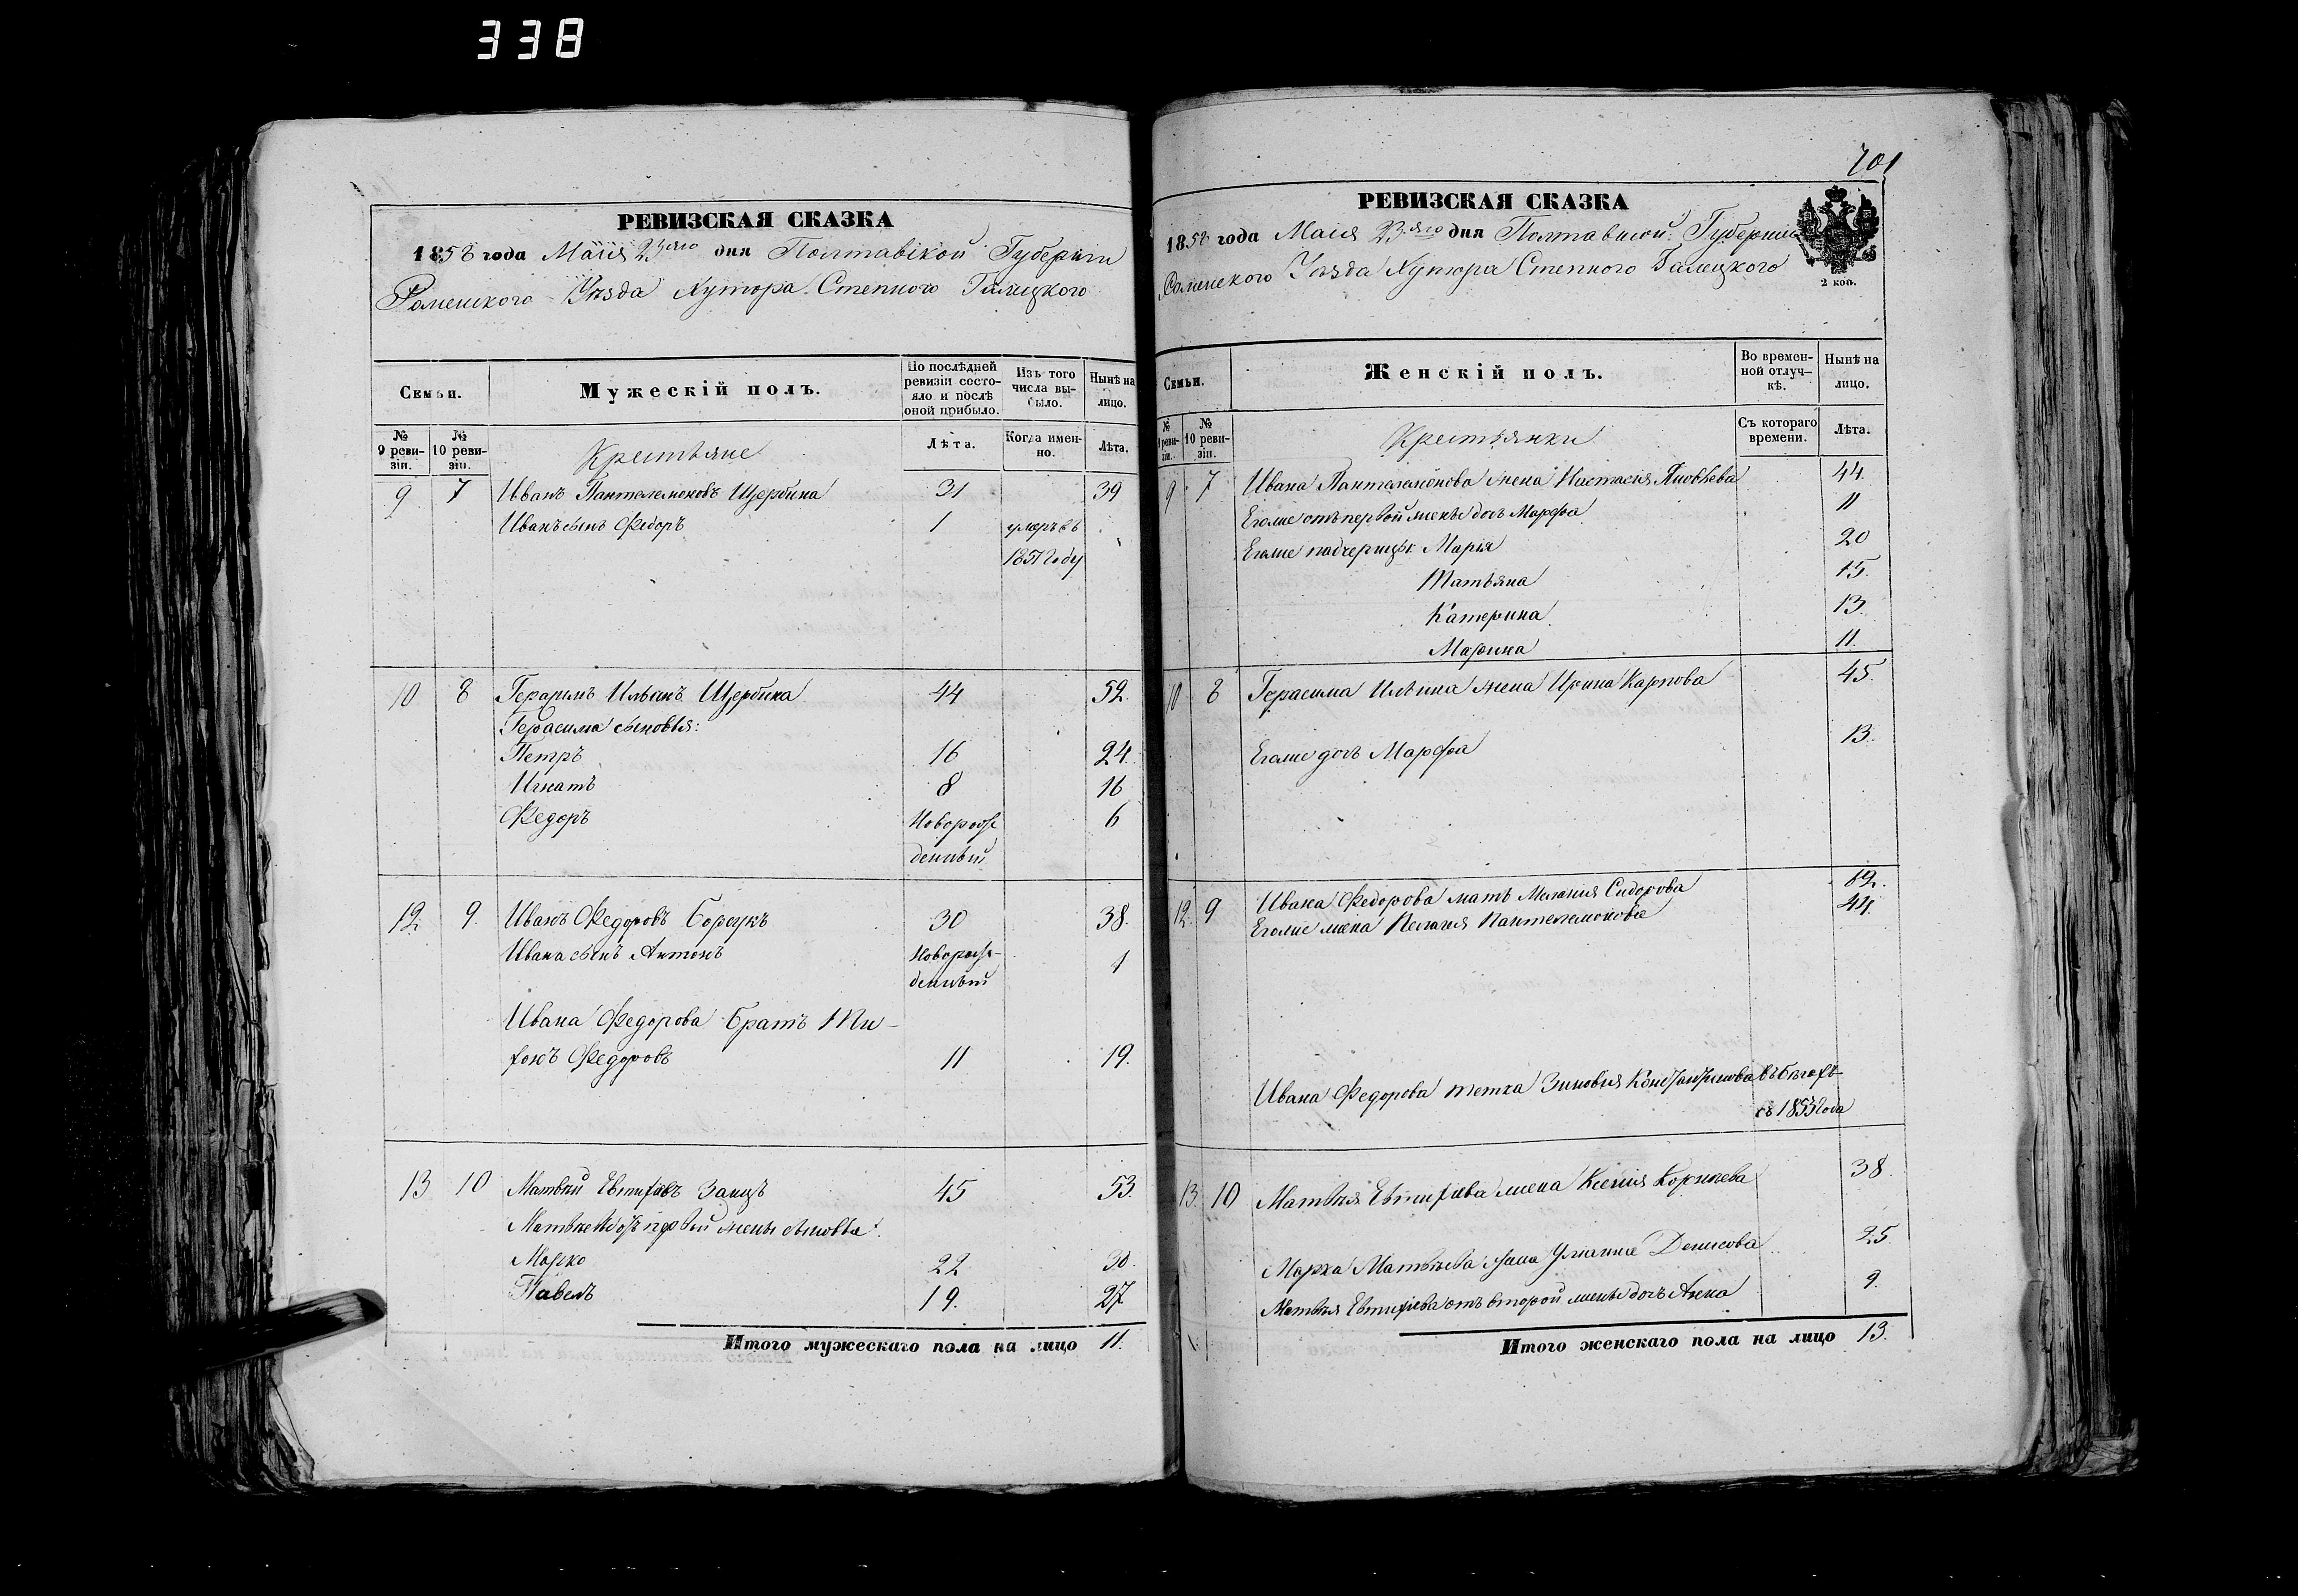 338
РЕВИЗСКАЯ СКАЗКА
1858 года Маія 23яго дня Полтавской Губерніи
Роменского Уѣзда Хутора Степного Галецкого
Семьи.
Мужескій полъ.
По послѣдней ревизіи состояло и послѣ оной прибыло.
Изъ того числа выбыло.
Нынѣ на лицо.
№ 9 ревизіи.
№ 10 ревизіи.
Крестьяне
Лѣта.
Когда именно.
Лѣта.
9 7 Иванъ Пантелемоновъ Щербина 31 39
Иванъ сынъ Федоръ 1 умеръ въ
1857 году
10 8 Герасимъ Ильинъ Щербина 44 52.
Герасима сыновья:
Петръ 16 24.
Игнатъ 8 16
Федоръ Новорож 6
денный
12. 9. Иванъ Федоровъ Борсукъ 30 38.
Ивана сынъ Антонъ Новорож- 1
денный
Ивана Федорова братъ Ти-
хонъ Федоровъ 11 19.
13 10 Матвѣй Евтифіевъ Заицъ 45 53.
первой жены сыновья:
Марко 22 30.
Павелъ 19. 27
Итого мужескаго пола на лицо 11.
701
РЕВИЗСКАЯ СКАЗКА
1858 года Маія 23.яго дня Полтавской Губерніи
Роменского Уѣзда Хутора Степного Галецкого
2 коп.
Семьи.
Женскій полъ.
Во временной отлучкѣ.
Нынѣ на лицо.
№ 9 ревизіи.
№ 10 ревизіи.
Крестьянки
Съ котораго времени.
Лѣта.
9 7 Ивана Пантелемонова жена Настасія Яковлева 44.
Егоже отъ первой жены дочь Марфа 11
Егоже падчерицы: Марія 20
Татьяна 15.
Катерина 13.
Марина 11.
10 8 Герасима Ильина жена Ирина Карпова 45.
Егоже дочь Марфа 13.
12. 9 Ивана Федорова мать Меланія Сидорова 62.
Егоже жена Пелагея Пантелемонова 44.
Ивана Федорова тетка Зиновія Константинова въ бѣгахъ
съ 1853 года
13. 10 Матвѣя Евтифіева жена Ксенія Корнѣева 38.
Марка Матвѣева жена Уліанна Денисова 25.
Матвѣя Евтифіева отъ второй жены дочь Анна 9.
Итого женскаго пола на лицо 13.